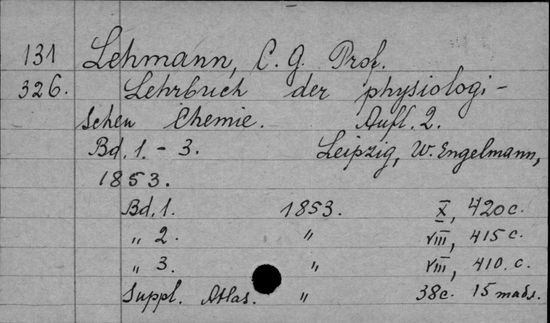 131 Lehmann, C. G. Prof.
326. Lehrbuch der physiologi-
schen Chemie. Aufl. 2.
Bd. 1. - 3. Leipzig, W. Engelmann,
1853.
Bd. 1. 1853. X, 420 c.
„ 2. „ VIII, 415 c.
„ 3. „ VIII, 410. c.
Suppl. Atlas. „ 38c. 15 табл.